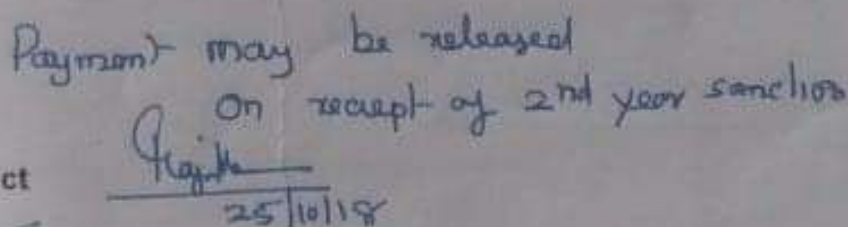 Payment may be released
On reciept of 2nd year sanction
ct
25/10/18